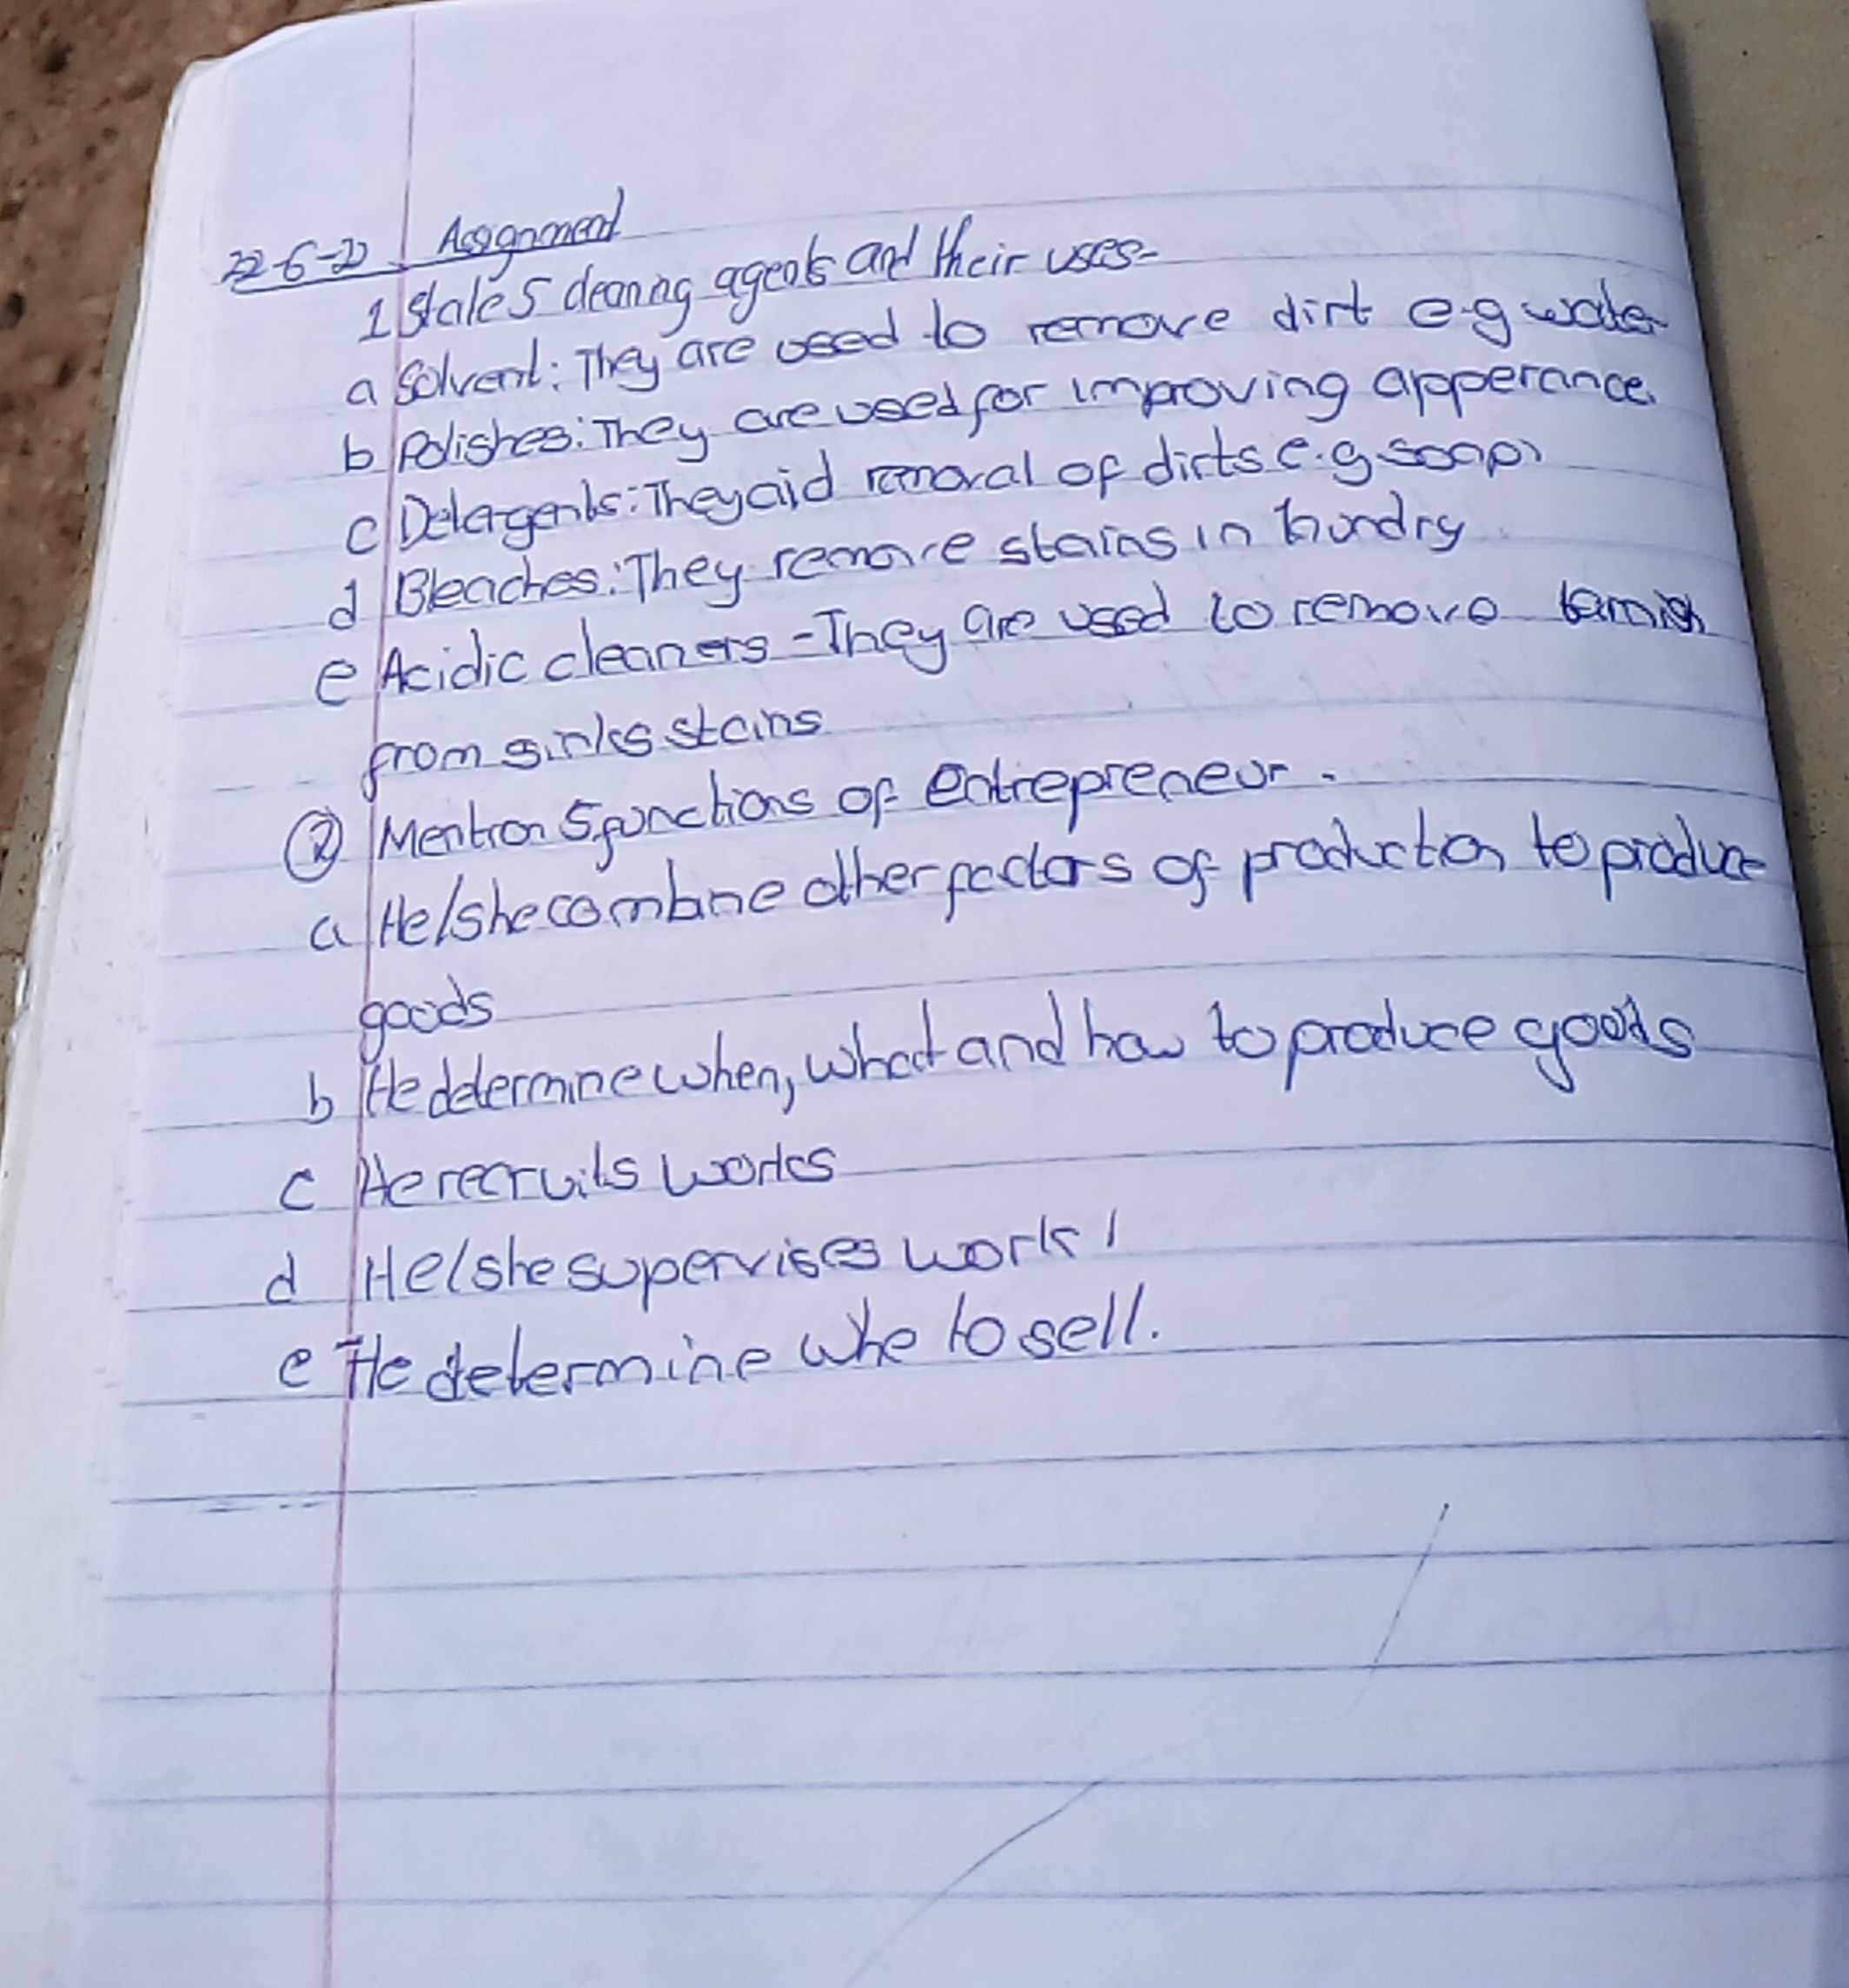 22-6-22 Assignment
1 State 5 cleaning agents and their uses-
a Solvent: They are used to remove dirt e.g water
b Polishes: They are used for improving apperance.
c Detergents: They aid removal of dirts e.g soap
d Bleaches: They remove stains in laundry
e Acidic cleaners - They are used to remove tarnish
from sinks stains
② Mention 5 functions of entrepreneur.
a He/she combine other factors of production to produce
goods
b He determine when, what and how to produce goods
c He recruits works
d He/she supervises work
e He determine whe to sell.